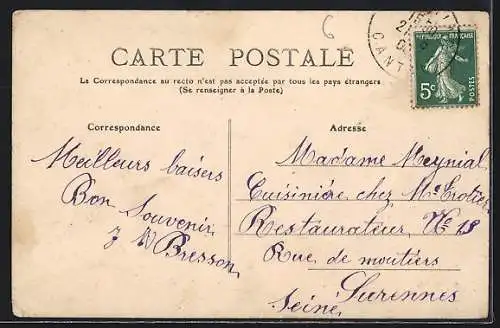 6
CARTE POSTALE
La Correspondance au recto n'est pas acceptée par tous les pays étrangers
(Se renseigner à la Poste)
REPUBLIQUE FRANÇAISE
5c
POSTES
21
CANT
Correspondance
Meilleurs baisers
Bon Souvenir
Bresson
Adresse
Madame Meynial
Cuisinière chez Mr Trotier
Restaurateur, No 13
Rue de moutiers
Surennes
Seine